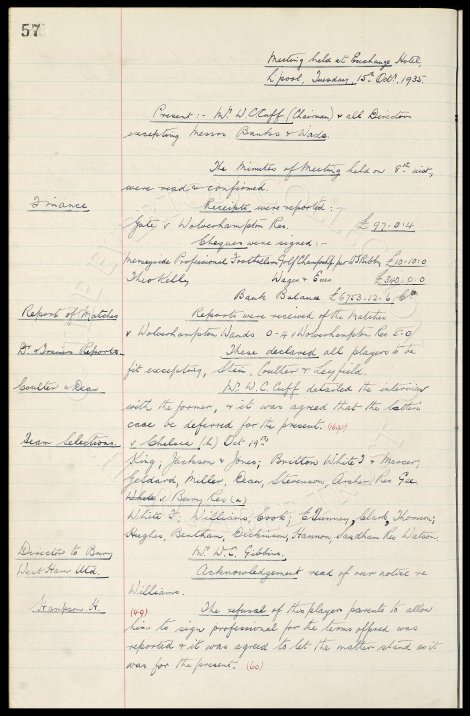 57
Meeting held at Exchange Hotel,
L'pool, Tuesday, 15th Octr. 1935
Present :- Mr. W.C. Cuff (Chairman) & all Directors
excepting Messrs Banks & Wade.
The Minutes of Meeting held on 8th inst,
were read & confirmed.
Finance
Receipts were reported :
Gate v Wolverhampton Res. £97.0.4
Cheques were signed :-
Merseyside Professional Footballers Golf Champ. per £10.10.0
Theo Kelly Wages & Exes £340.0.0
Bank Balance £6753.12.6 Cr.
Report of Matches
Reports were received of the Matches
v Wolverhampton Wands 0-4 v Wolverhampton Res 5.0
Dr. & Trainers Reports.
These declared all players to be
fit excepting, Stein, Coulter & Leyfield.
Coulter & Dean
Mr W.C. Cuff detailed the interview
with the former, & it was agreed that the latters
case be deferred for the present.
Team Selections.
v Chelsea (h) Oct 19th
King; Jackson & Jones; Britton White T & Mercer;
Geldard, Miller, Dean, Stevenson Archer. Res Gee
White v Bury Res (a)
White W; Williams, Cook; Clark, Thomson;
Hughes, Bentham, Dickinson, Hannon, Res Watson.
Director to Bury
Mr. W.C. Gibbins.
West Ham Utd.
Acknowledgement read of our notice re
Williams.
Hampson H.
(49) The refusal of this players parents to allow
him to sign professional for the terms offered was
reported & it was agreed to let the matter stand as it
was for the present. (60)